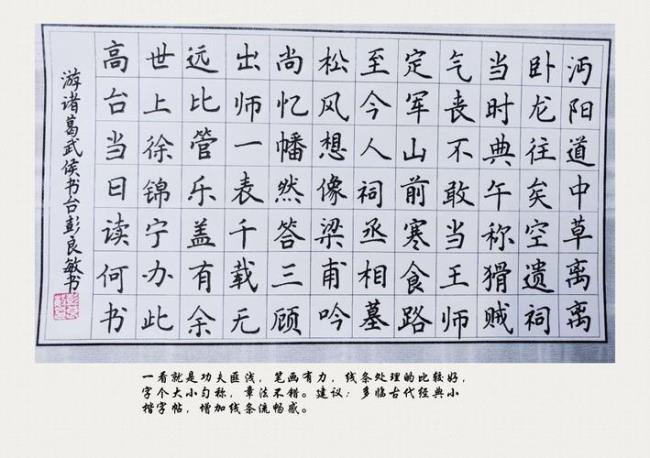 沔阳道中草离离
卧龙往矣空遗祠
当时典午称猾贼
气丧不敢当王师
定军山前寒食路
至今人祠丞相墓
松风想像梁甫吟
尚忆幡然答三顾
出师一表千载无
远比管乐盖有余
世上徐锦宁办此
高台当日读何书
游诸葛武侯书台彭良敏书
一看就是功夫匪浅，笔画有力，线条处理的比较好，
字个大小匀称，章法不错。建议：多临古代经典小
楷字帖，增加线条流畅感。